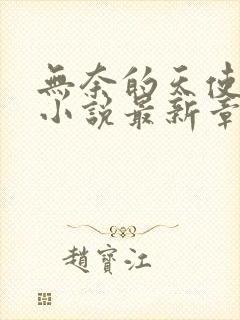 無奈的天使
小說最新章
趙寶江